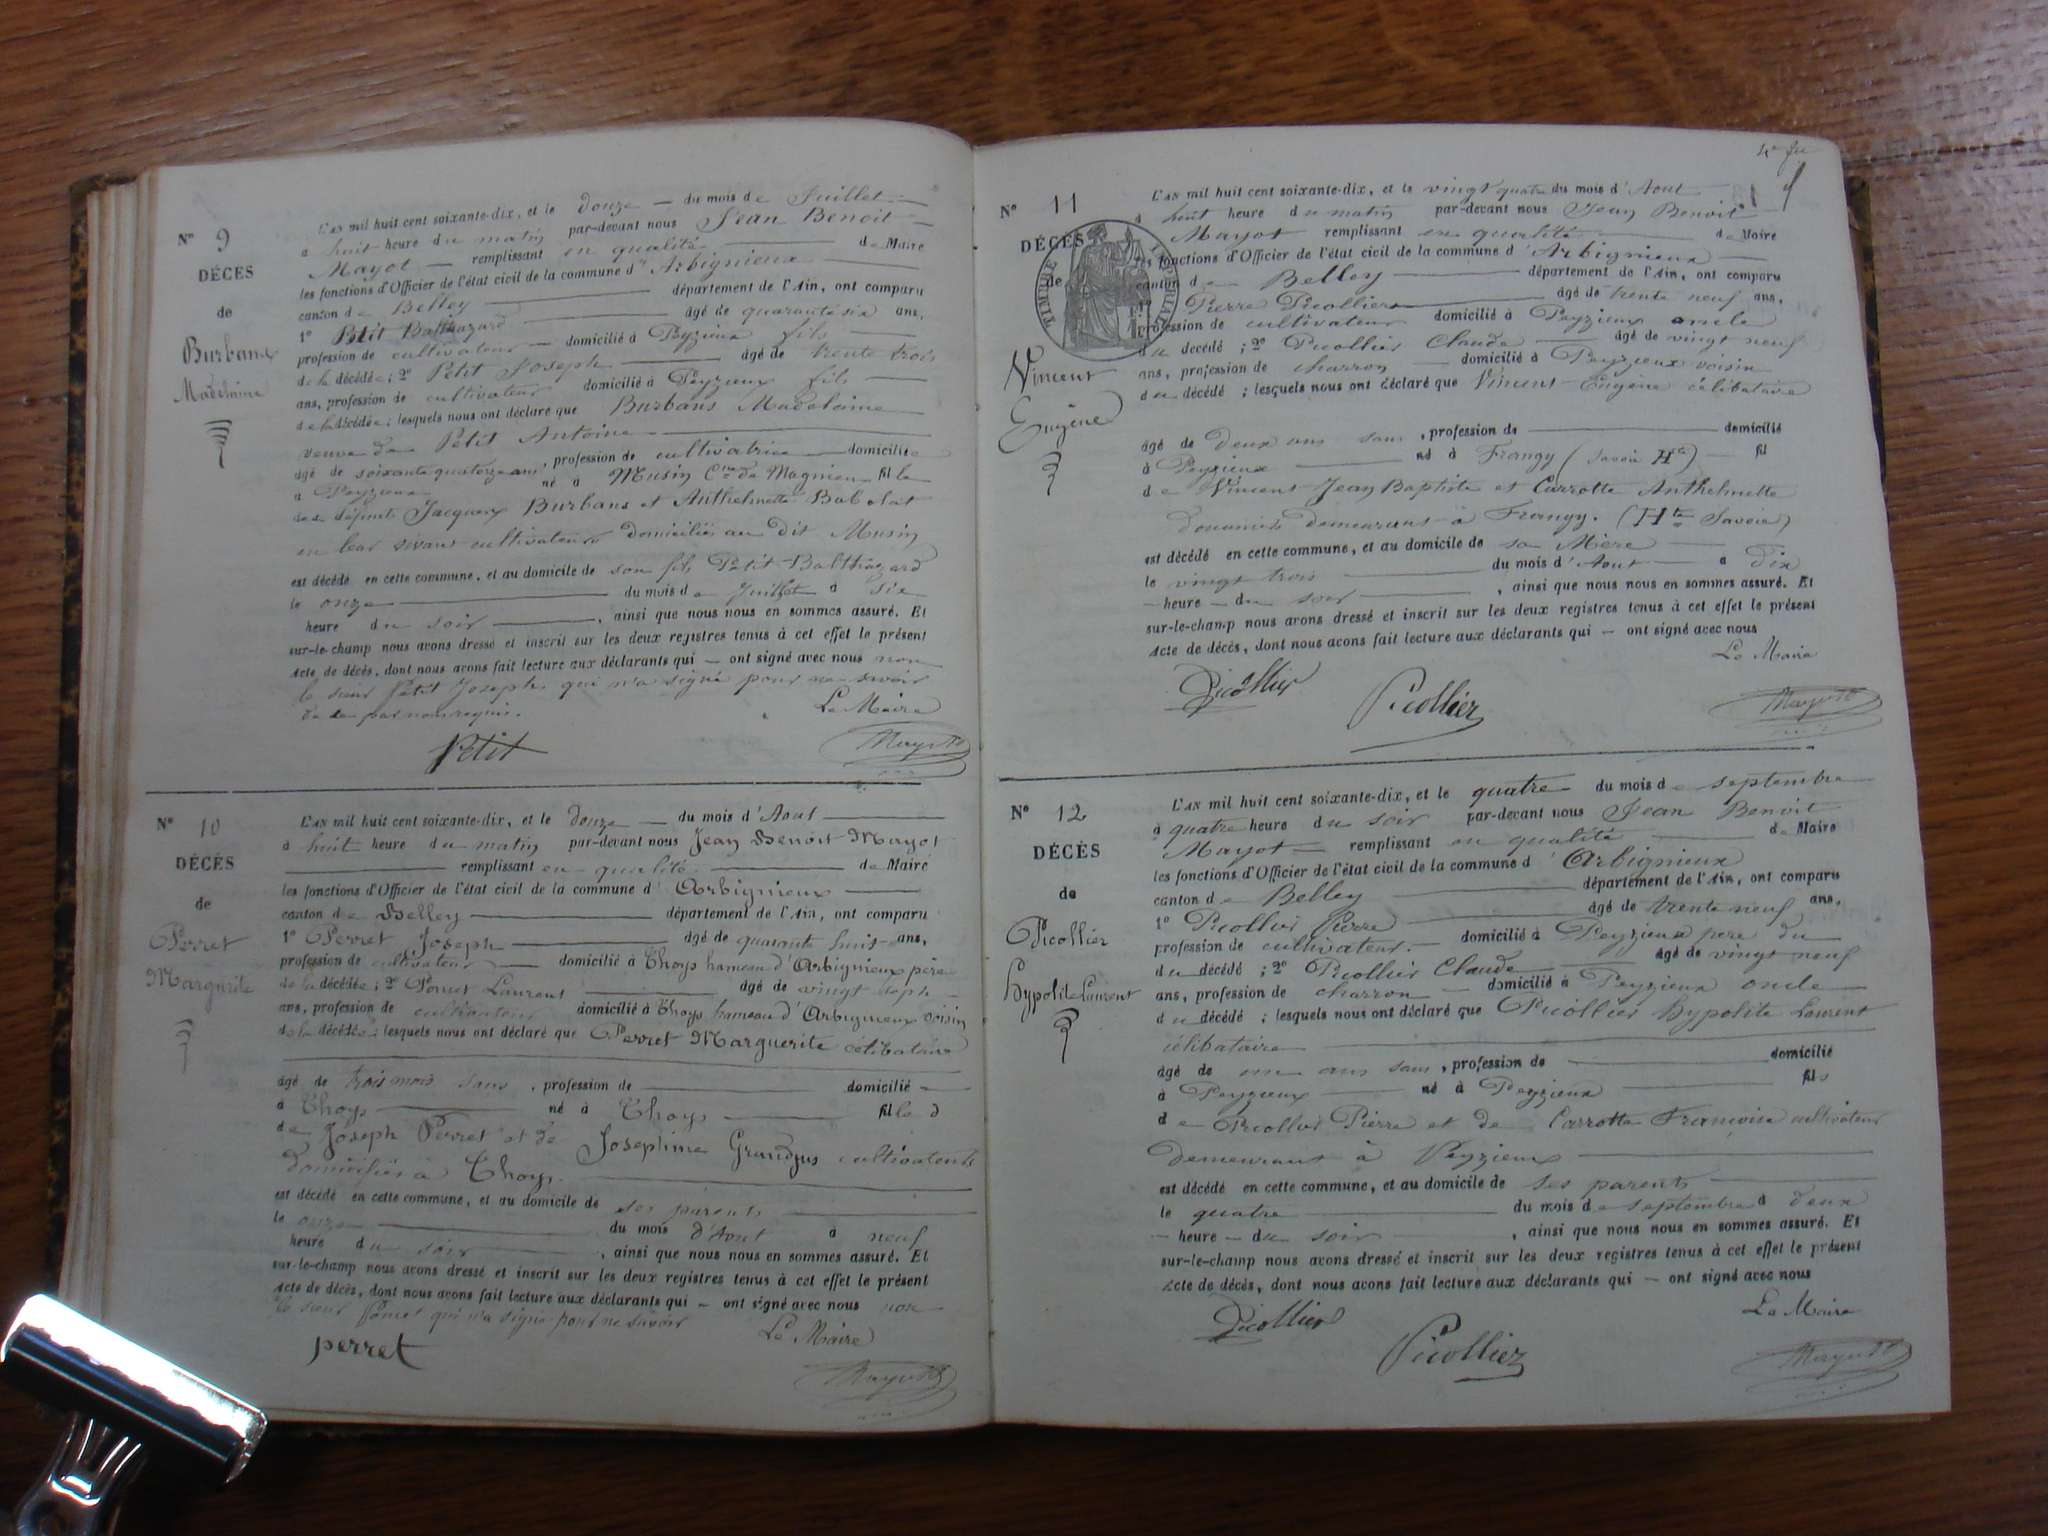 N° 9
DÉCÈS
de
Burbans
Madelaine
L'AN mil huit cent soixante-dix, et le douze du mois de Juillet
à huit heure du matin par-devant nous Jean Benoit
Mayot remplissant en qualité de Maire
les fonctions d'Officier de l'état civil de la commune d' Arbignieux
canton de Belley département de l'Ain, ont comparu
1° Petit Balthazard âgé de quarante six ans,
profession de cultivateur domicilié à Peyzieux fils
de la décédée; 2° Petit Joseph âgé de trente trois
ans, profession de cultivateur domicilié à Peyzieux fils
de la décédée; lesquels nous ont déclaré que Burbans Madelaine
veuve de Petit Antoine
âgé de soixante quatorze ans, profession de cultivatrice domicilié
à Peyzieux né à Musin Cne de Magnieu fille
des défunts Jacques Burbans et Anthelmette Babolat
en leur vivant cultivateurs domiciliés au dit Musin
est décédé en cette commune, et au domicile de son fils Petit Balthazard
le onze du mois de Juillet à six
heure du soir, ainsi que nous nous en sommes assuré. Et
sur-le-champ nous avons dressé et inscrit sur les deux registres tenus à cet effet le présent
acte de décès, dont nous avons fait lecture aux déclarants qui — ont signé avec nous non
le sieur Petit Joseph qui n'a signé pour ne savoir
de ce par nous requis.
Le Maire
Petit
Mayot
N° 10
DÉCÈS
de
Perret
Margurite
L'AN mil huit cent soixante-dix, et le douze du mois d'Aout
à huit heure du matin par-devant nous Jean Benoit Mayot
remplissant en qualité de Maire
les fonctions d'Officier de l'état civil de la commune d' Arbignieux
canton de Belley département de l'Ain, ont comparu
1° Perret Joseph âgé de quarante huit ans,
profession de cultivateur domicilié à Thoys hameau d'Arbignieux père
de la décédée; 2° Ponet Laurent âgé de vingt sept
ans, profession de cultivateur domicilié à Thoys hameau d'Arbignieux voisin
de la décédée; lesquels nous ont déclaré que Perret Marguerite célibataire
âgé de trois mois sans, profession de domicilié
à Thoys né à Thoys fille d
de Joseph Perret et de Josephine Grandjus cultivateurs
domiciliés à Thoys.
est décédé en cette commune, et au domicile de ses parents
le onze du mois d'Aout à neuf
heure du soir, ainsi que nous nous en sommes assuré. Et
sur-le-champ nous avons dressé et inscrit sur les deux registres tenus à cet effet le présent
acte de décès, dont nous avons fait lecture aux déclarants qui — ont signé avec nous non
le sieur Ponet qui n'a signé pour ne savoir
Le Maire
perret
Mayot
N° 11
DÉCÈS
de
Vincent
Eugène
TIMBRE IMPÉRIAL
L'AN mil huit cent soixante-dix, et le vingt quatre du mois d'Aout
à huit heure du matin par-devant nous Jean Benoit
Mayot remplissant en qualité de Maire
les fonctions d'Officier de l'état civil de la commune d'Arbignieux
canton de Belley département de l'Ain, ont comparu
1° Pierre Picollier âgé de trente neuf ans,
profession de cultivateur domicilié à Peyzieux oncle
du décédé; 2° Picollier Claude âgé de vingt neuf
ans, profession de charron domicilié à Peyzieux voisin
du décédé; lesquels nous ont déclaré que Vincent Eugène célibataire
âgé de deux ans sans, profession de domicilié
à Peyzieux né à Frangy (Savoie Hte) fil
de Vincent Jean Baptiste et Carrotte Anthelmette
douaniers demeurant à Frangy. (Hte Savoie)
est décédé en cette commune, et au domicile de sa Mère
le vingt trois du mois d'Aout à dix
heure du soir, ainsi que nous nous en sommes assuré. Et
sur-le-champ nous avons dressé et inscrit sur les deux registres tenus à cet effet le présent
acte de décès, dont nous avons fait lecture aux déclarants qui — ont signé avec nous
Le Maire
Picollier
Picollier
Mayot
N° 12
DÉCÈS
de
Picollier
hypolite Laurent
L'AN mil huit cent soixante-dix, et le quatre du mois de septembre
à quatre heure du soir par-devant nous Jean Benoit
Mayot remplissant en qualité de Maire
les fonctions d'Officier de l'état civil de la commune d'Arbignieux
canton de Belley département de l'Ain, ont comparu
1° Picollier Pierre âgé de trente neuf ans,
profession de cultivateur domicilié à Peyzieux père du
du décédé; 2° Picollier Claude âgé de vingt neuf
ans, profession de charron domicilié à Peyzieux oncle
du décédé; lesquels nous ont déclaré que Picollier hypolite Laurent
célibataire
âgé de un ans sans, profession de domicilié
à Peyzieux né à Peyzieux fils
de Picollier Pierre et de Carrotte Françoise cultivateur
demeurant à Peyzieux
est décédé en cette commune, et au domicile de ses parents
le quatre du mois de septembre à deux
heure du soir, ainsi que nous nous en sommes assuré. Et
sur-le-champ nous avons dressé et inscrit sur les deux registres tenus à cet effet le présent
acte de décès, dont nous avons fait lecture aux déclarants qui — ont signé avec nous
Le Maire
Picollier
Picollier
Mayot